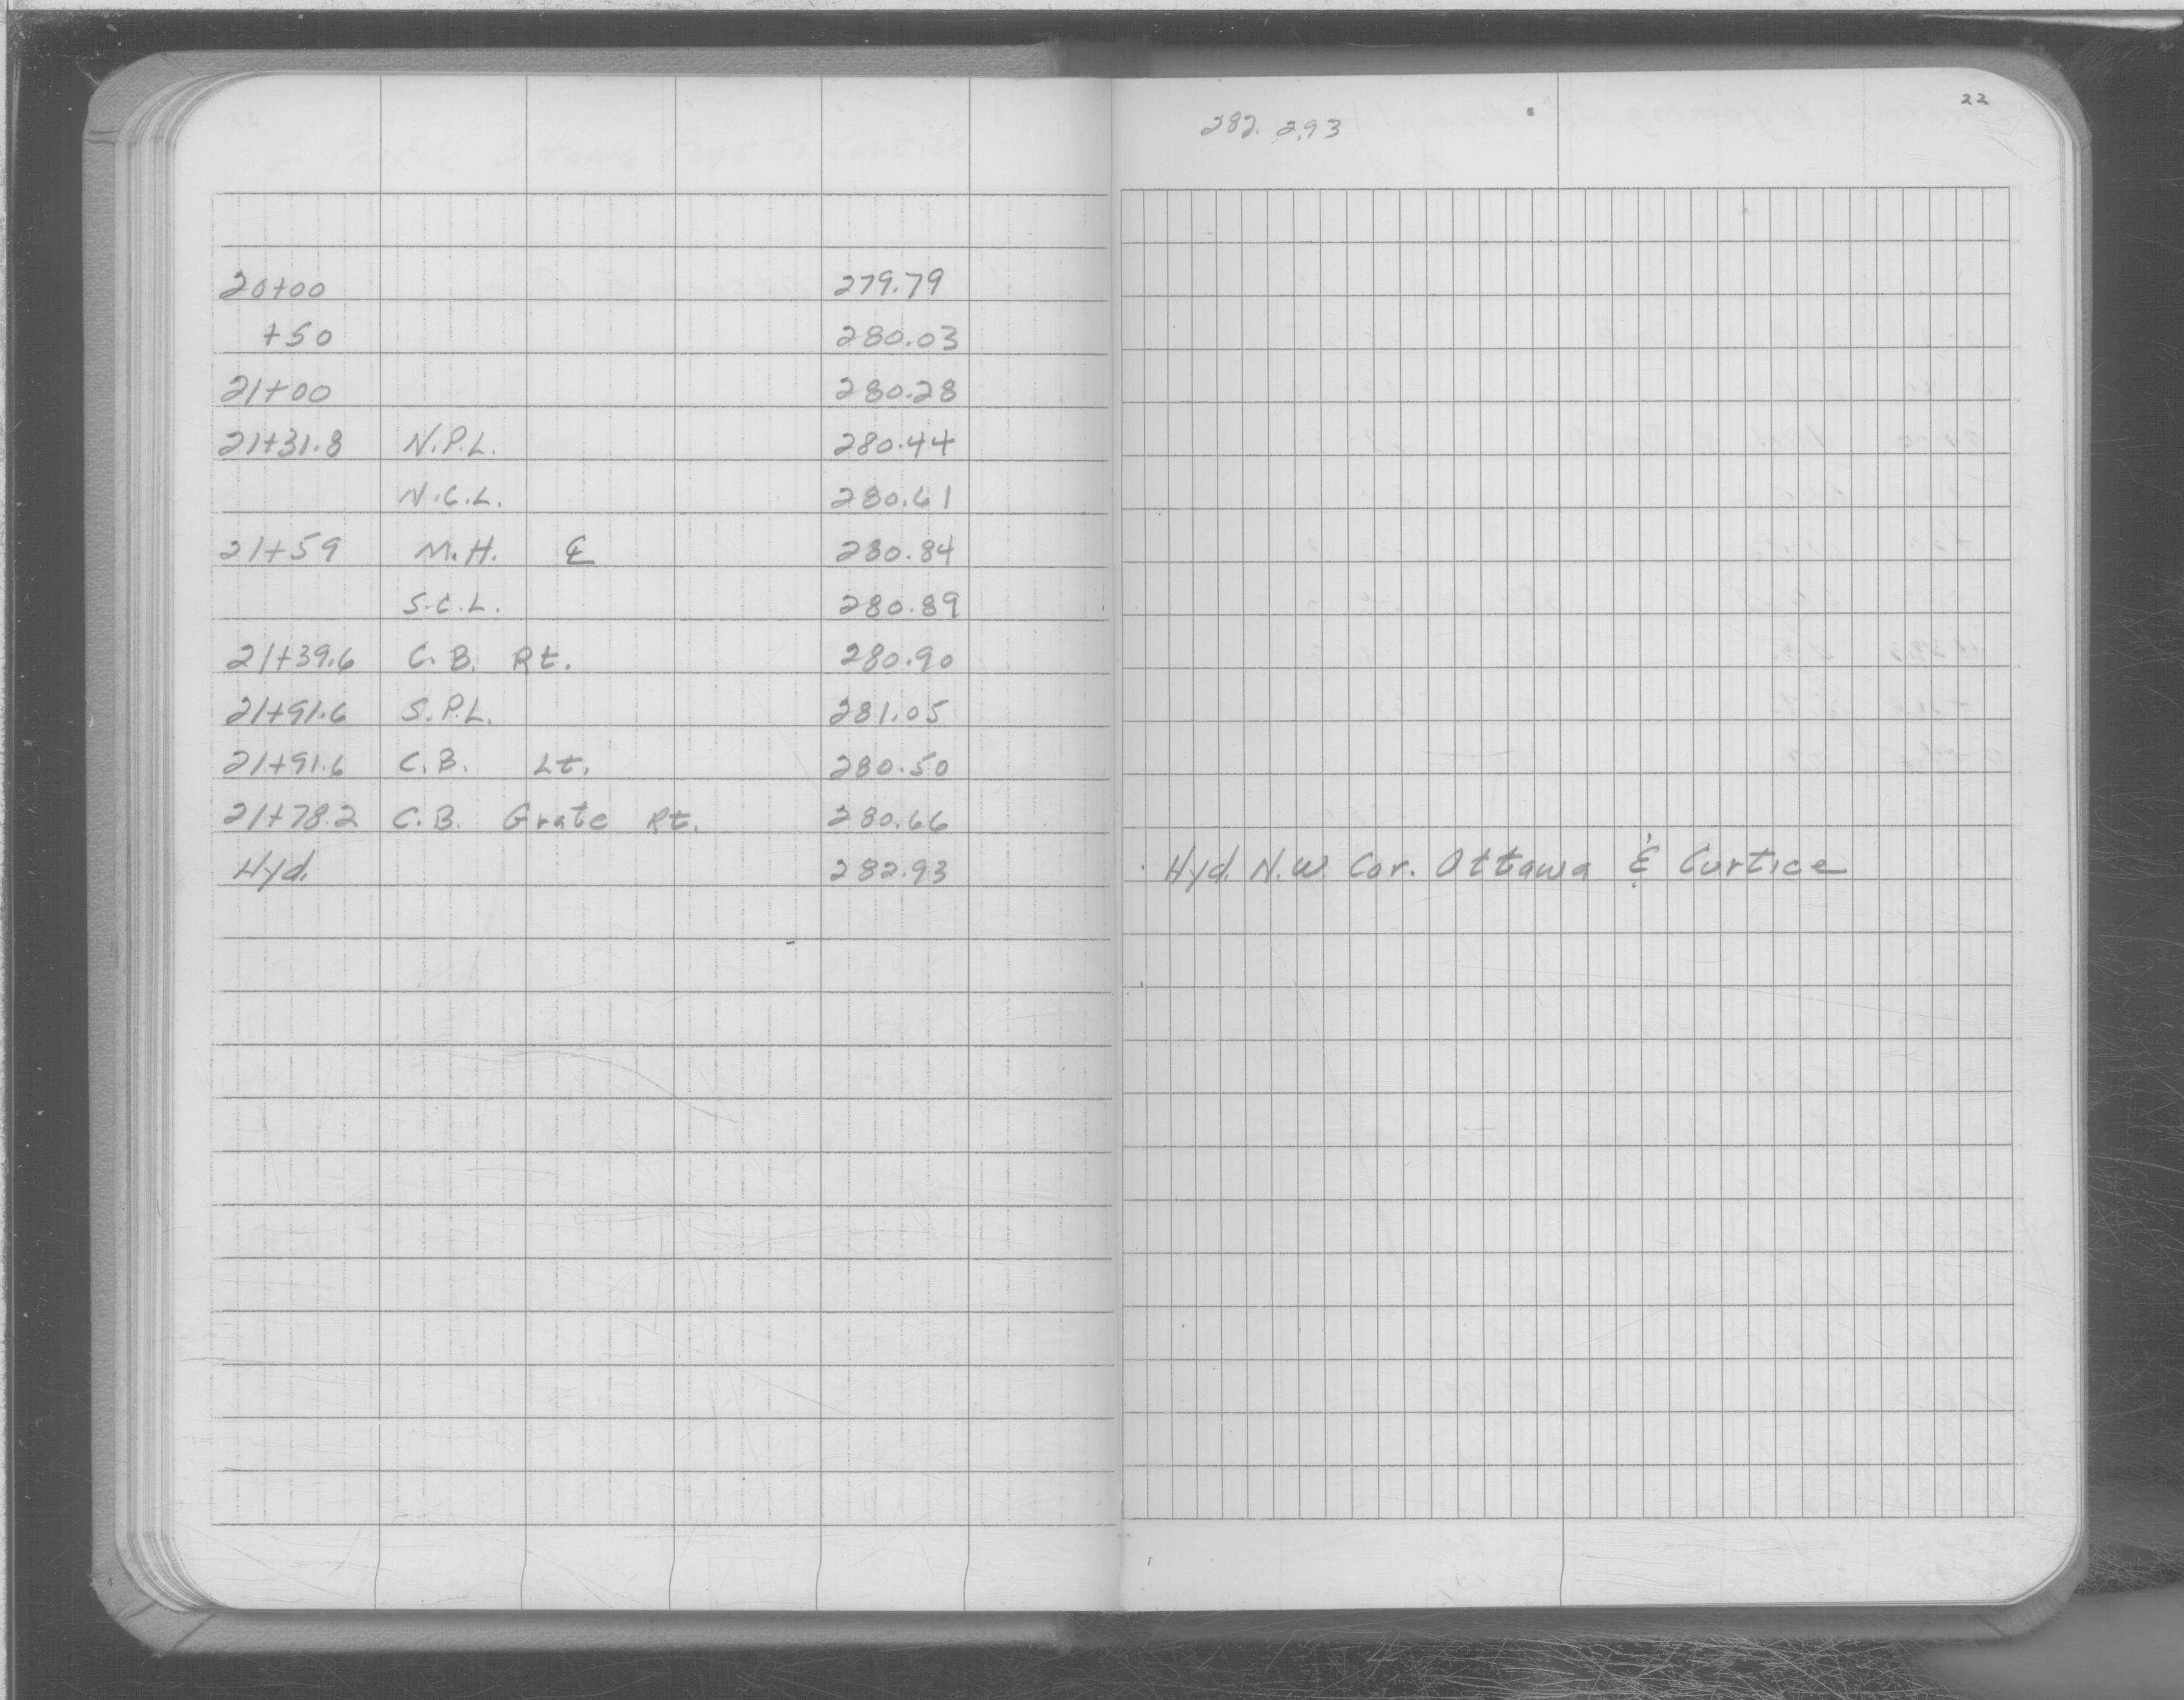 20+00 279.79
+50 280.03
21+00 280.28
21+31.8 N.P.L. 280.44
N.C.L. 280.61
21+59 M.H. ℄ 280.84
S.C.L. 280.89
21+39.6 C.B. Rt. 280.90
21+91.6 S.P.L. 281.05
21+91.6 C.B. Lt. 280.50
21+78.2 C.B. Grate Rt. 280.66
Hyd. 282.93
22
282. 2.93
Hyd. N.W. Cor. Ottawa & Curtice